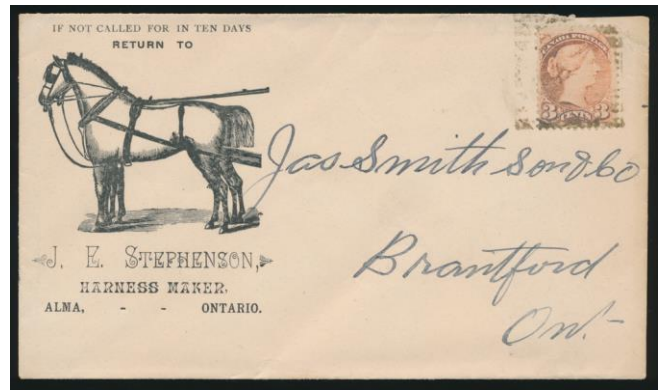 IF NOT CALLED FOR IN TEN DAYS
RETURN TO
J. E. STEPHENSON,
HARNESS MAKER,
ALMA, - - ONTARIO.
CANADA POSTAGE
3 CENTS 3
Jas Smith Son & Co
Brantford
Ont-